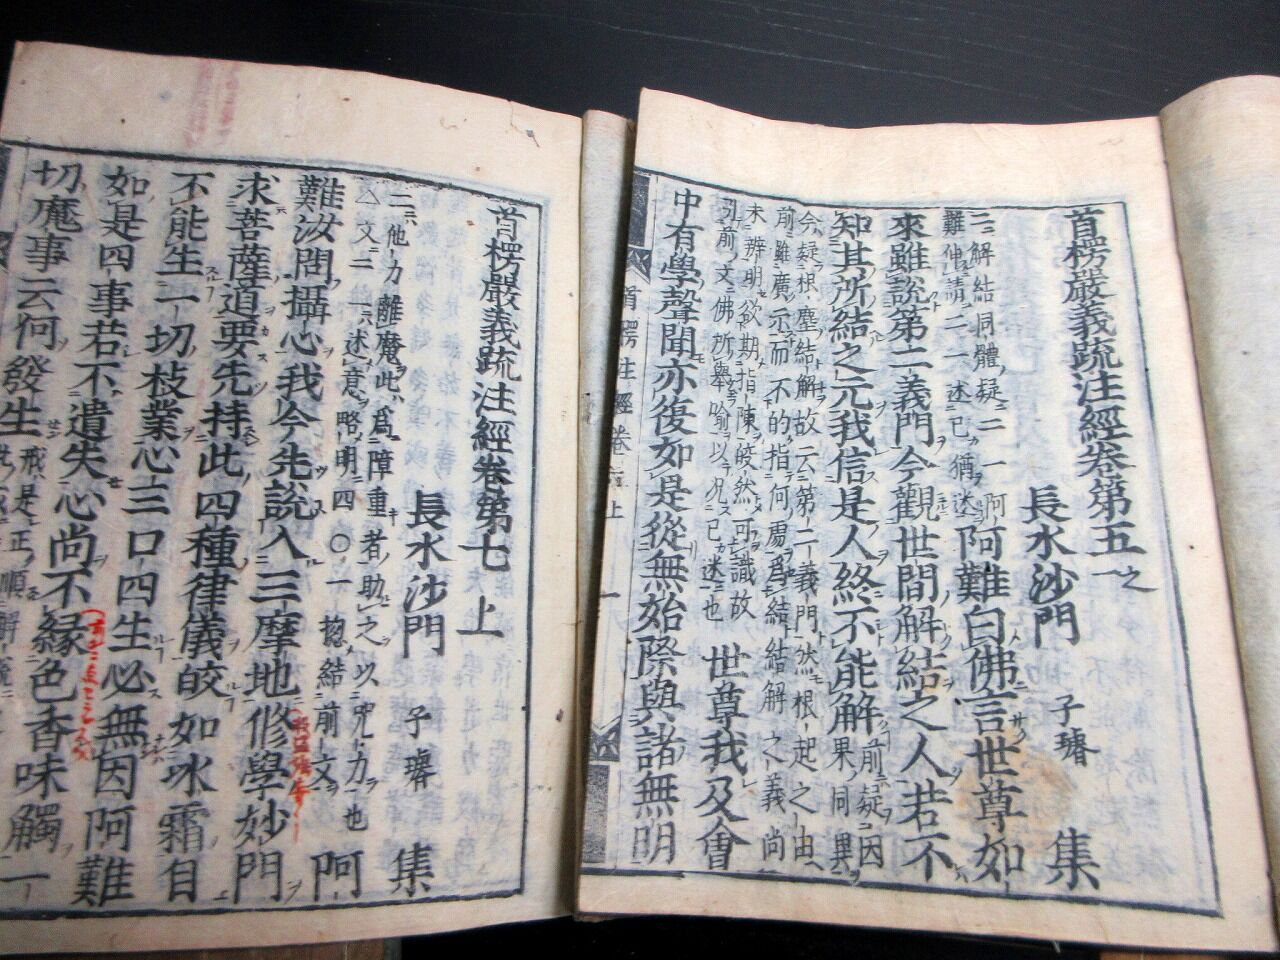 首楞嚴義疏注經卷第五一之
長水沙門 子璿 集
二解結同體疑二一阿
難伸請二一述已猶迷
阿難白佛言世尊如
來雖說第二義門今觀世間解結之人若不
知其所結之元我信是人終不能解
前疑因
果同異
今疑根塵結解故云第二義門然根起之由
前雖廣示而不的指何處為結結解之義尚
未辨明欲期指陳皎然可識故
引前文佛所舉喻以況已迷也
世尊我及會
中有學聲聞亦復如是從無始際與諸無明
首楞注經卷六上
首楞嚴義疏注經卷第七上
長水沙門 子璿 集
二他力離魔此為障重者助之以呪力也
△文二一述意略明四○一揔結前文
阿
難汝問攝心我今先說入三摩地修學妙門
求菩薩道要先持此四種律儀皎如冰霜自
不能生一切枝業心三口四生必無因阿難
如是四事若不遺失心尚不緣色香味觸一
切魔事云何發生